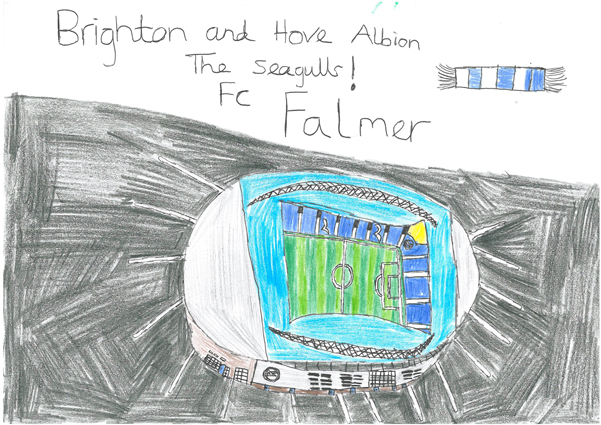 Brighton and Hove Albion
The Seagulls!
FC
Falmer